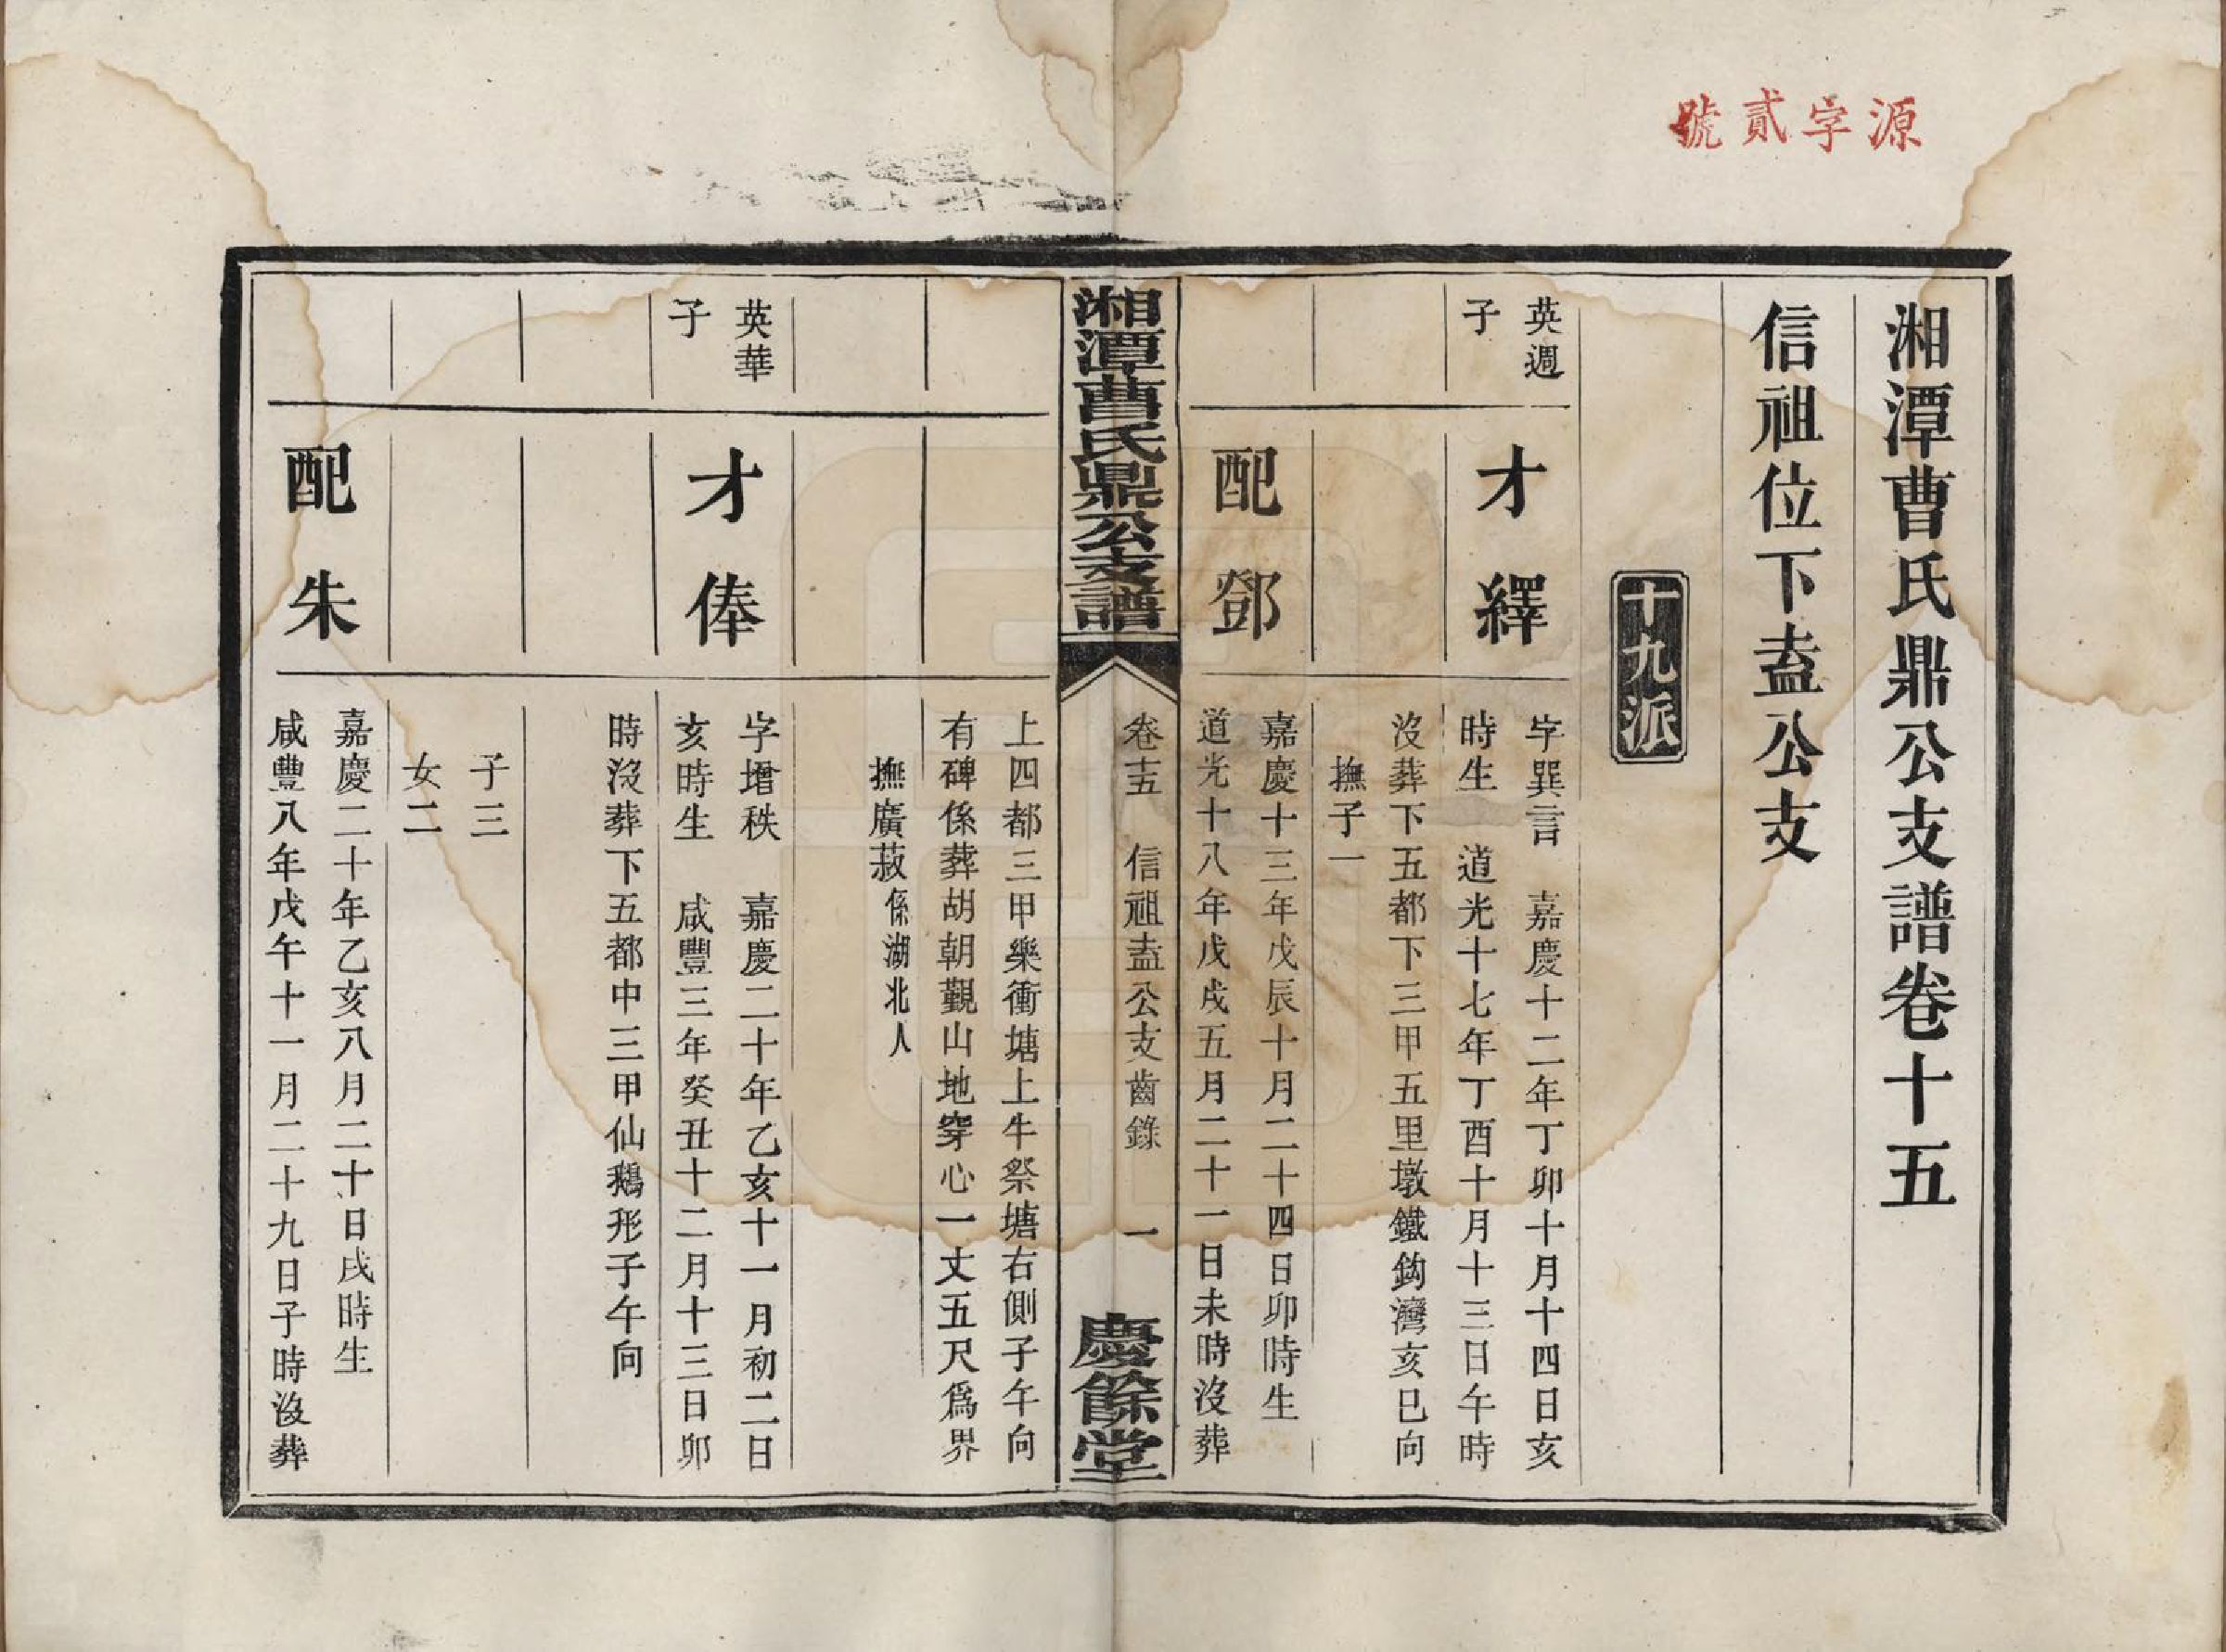 源字貳號
湘潭曹氏鼎公支譜卷十五
信祖位下盍公支
十九派
英週
子
才繹
字巽言 嘉慶十二年丁卯十月十四日亥
時生 道光十七年丁酉十月十三日午時
沒葬下五都下三甲五里墩鐵鈎灣亥巳向
撫子一
配鄧
嘉慶十三年戊辰十月二十四日卯時生
道光十八年戊戌五月二十一日未時沒葬
湘潭曹氏鼎公支譜
卷十五 信祖盍公支齒錄 一
慶餘堂
上四都三甲樂衝塘上牛祭塘右側子午向
有碑係葬胡朝覲山地穿心一丈五尺爲界
撫廣菽係湖北人
英華
子
才俸
字增秩 嘉慶二十年乙亥十一月初二日
亥時生 咸豐三年癸丑十二月十三日卯
時沒葬下五都中三甲仙鵝形子午向
子三
女二
配朱
嘉慶二十年乙亥八月二十日戌時生
咸豐八年戊午十一月二十九日子時沒葬